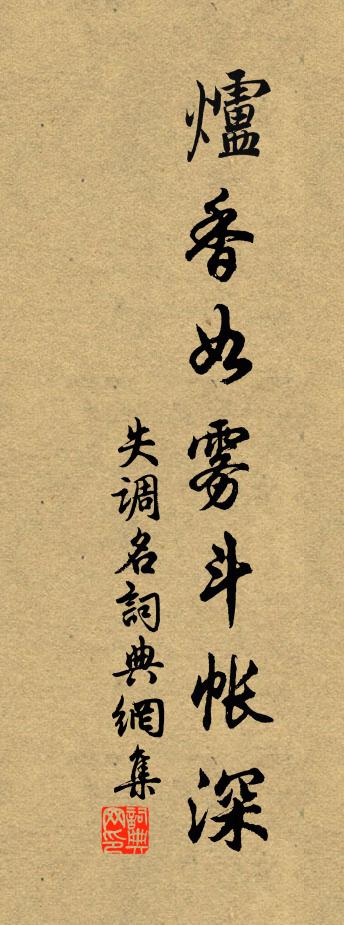 爐香如雾斗帐深
失调名詞典網集
詞典网印